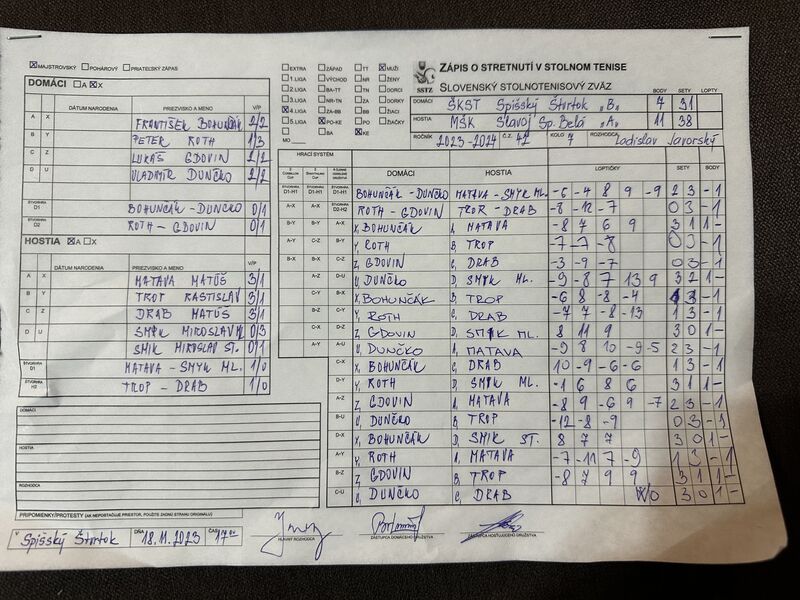 MAJSTROVSKÝ POHÁROVÝ PRIATEĽSKÝ ZÁPAS
DOMÁCI A X
DÁTUM NARODENIA PRIEZVISKO A MENO V/P
A X FRANTIŠEK BOHUNČÁK 2/2
B Y PETER ROTH 1/3
C Z LUKÁŠ GDOVIN 2/2
D U VLADIMÍR DUNČKO 2/2
ŠTVORHRA D1 BOHUNČÁK - DUNČKO 0/1
ŠTVORHRA D2 ROTH - GDOVIN 0/1
HOSTIA A X
DÁTUM NARODENIA PRIEZVISKO A MENO V/P
A X MATAVA MATÚŠ 3/1
B Y TROP RASTISLAV 3/1
C Z DRAB MATÚŠ 3/1
D U SMIK MIROSLAV ML 0/3
SMIK MIROSLAV ST. 0/1
ŠTVORHRA D1 MATAVA - SMYK ML. 1/0
ŠTVORHRA H2 TROP - DRAB 1/0
DOMÁCI
HOSTIA
ROZHODCA
PRIPOMIENKY/PROTESTY (AK NEPOSTAČUJE PRIESTOR, POUŽITE ZADNÚ STRANU ORIGINÁLU)
V Spišský Štvrtok DŇA 18.11.2023 ČAS 17 00
HLAVNÝ ROZHODCA ZÁSTUPCA DOMÁCEHO DRUŽSTVA ZÁSTUPCA HOSŤUJÚCEHO DRUŽSTVA
EXTRA ZÁPAD TT MUŽI
1.LIGA VÝCHOD NR ŽENY
2.LIGA BA-TT TN DORCI
3.LIGA NR-TN ZA DORKY
4.LIGA ZA-BB BB ŽIACI
5.LIGA PO-KE PO ŽIAČKY
BA KE
MO
SSTZ
ZÁPIS O STRETNUTÍ V STOLNOM TENISE
SLOVENSKÝ STOLNOTENISOVÝ ZVÄZ BODY SETY LOPTY
DOMÁCI ŠKST Spišský Štvrtok "B" 7 31
HOSTIA MŠK Slavoj Sp. Belá "A" 11 38
ROČNÍK 2023-2024 Č.Z. 42 KOLO 7 ROZHODCA Ladislav Javorský
HRACÍ SYSTÉM
DOMÁCI HOSTIA LOPTIČKY SETY BODY
D1-H1 D1-H1 D1-H1 BOHUNČÁK - DUNČKO MATAVA - SMYK ML. -6 -4 8 9 -9 2 3 - 1
A-X A-X D2-H2 ROTH - GDOVIN TROP - DRAB -8 -12 -7 0 3 - 1
B-Y B-Y A-X X, BOHUNČÁK A, MATAVA -8 7 6 9 3 1 1 -
A-Y C-Z B-Y Y, ROTH B, TROP -7 -7 -8 0 3 - 1
B-X B-X C-Z Z, GDOVIN C, DRAB -3 -9 -7 0 3 - 1
A-Z D-U U, DUNČKO D, SMYK ML. -9 -8 7 13 9 3 2 1 -
C-Y B-X X, BOHUNČÁK B, TROP -6 8 -8 -4 1 3 - 1
B-Z C-Y Y, ROTH C, DRAB -7 7 -8 -13 1 3 - 1
C-X D-Z Z, GDOVIN D, SMIK ML. 8 11 9 3 0 1 -
A-Y A-U U, DUNČKO A, MATAVA -9 8 10 -9 -5 2 3 - 1
C-X X, BOHUNČÁK C, DRAB 10 -9 -6 -6 1 3 - 1
D-Y Y, ROTH D, SMYK ML. -1 6 8 6 3 1 1 -
A-Z Z, GDOVIN A, MATAVA -8 9 -6 9 -7 2 3 - 1
B-U U, DUNČKO B, TROP -12 -8 -9 0 3 - 1
D-X X, BOHUNČÁK D, SMIK ST. 8 7 7 3 0 1 -
A-Y Y, ROTH A, MATAVA -7 -11 7 -9 1 3 - 1
B-Z Z, GDOVIN B, TROP -8 7 9 9 3 1 1 -
C-U U, DUNČKO C, DRAB W/O 3 0 1 -